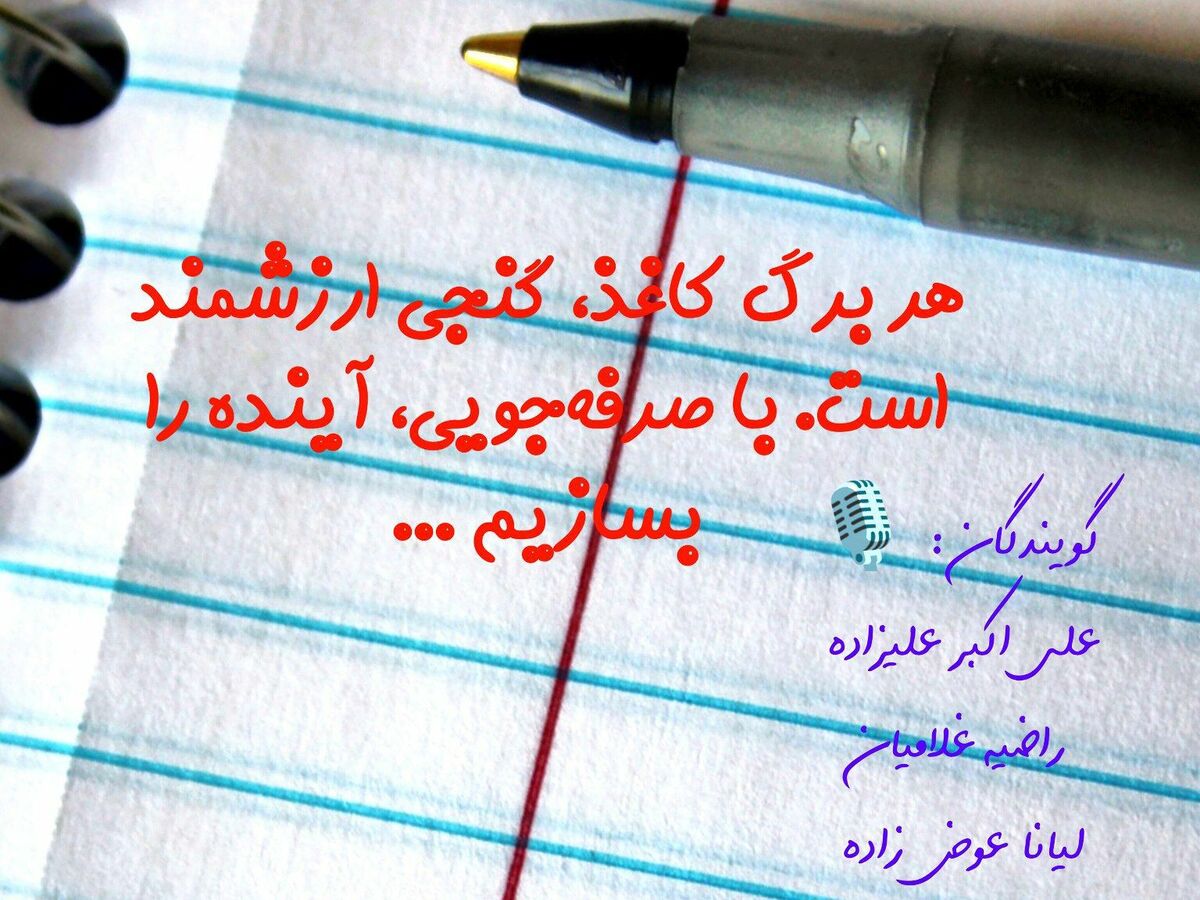 هر برگ کاغذ، گنجی ارزشمند
است. با صرفه‌جویی، آینده را
بسازیم ...
گویندگان: 🎙️
علی اکبر علیزاده
راضیه غلامیان
لیانا عوض زاده